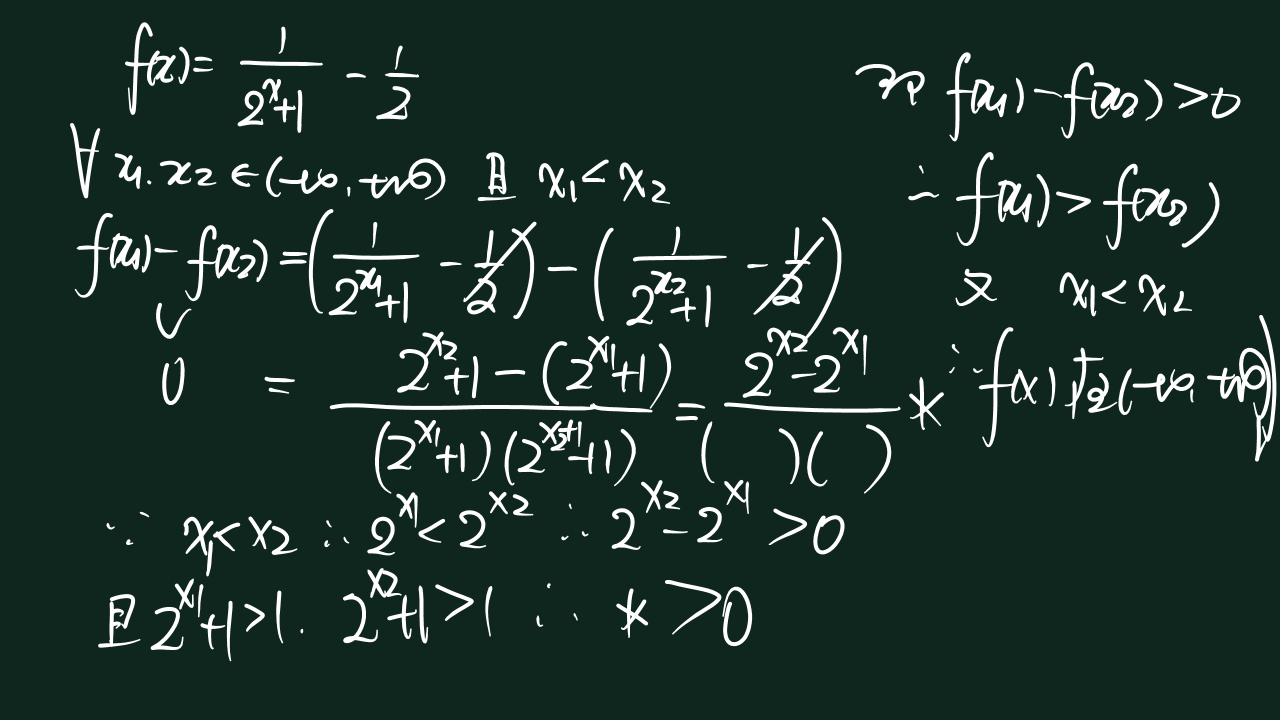 f(x) = 1/(2^x+1) - 1/2
∀ x₁, x₂ ∈ (-∞, +∞) 且 x₁ < x₂
f(x₁) - f(x₂) = (1/(2^x₁+1) - 1/2) - (1/(2^x₂+1) - 1/2)
∨
0 = (2^x₂+1 - (2^x₁+1))/((2^x₁+1)(2^x₂+1)) = (2^x₂ - 2^x₁)/(( )( )) *
∵ x₁ < x₂ ∴ 2^x₁ < 2^x₂ ∴ 2^x₂ - 2^x₁ > 0
且 2^x₁+1 > 1. 2^x₂+1 > 1 ∴ * > 0
f(x₁) - f(x₂) > 0
∴ f(x₁) > f(x₂)
又 x₁ < x₂
∴ f(x) (-∞, +∞)